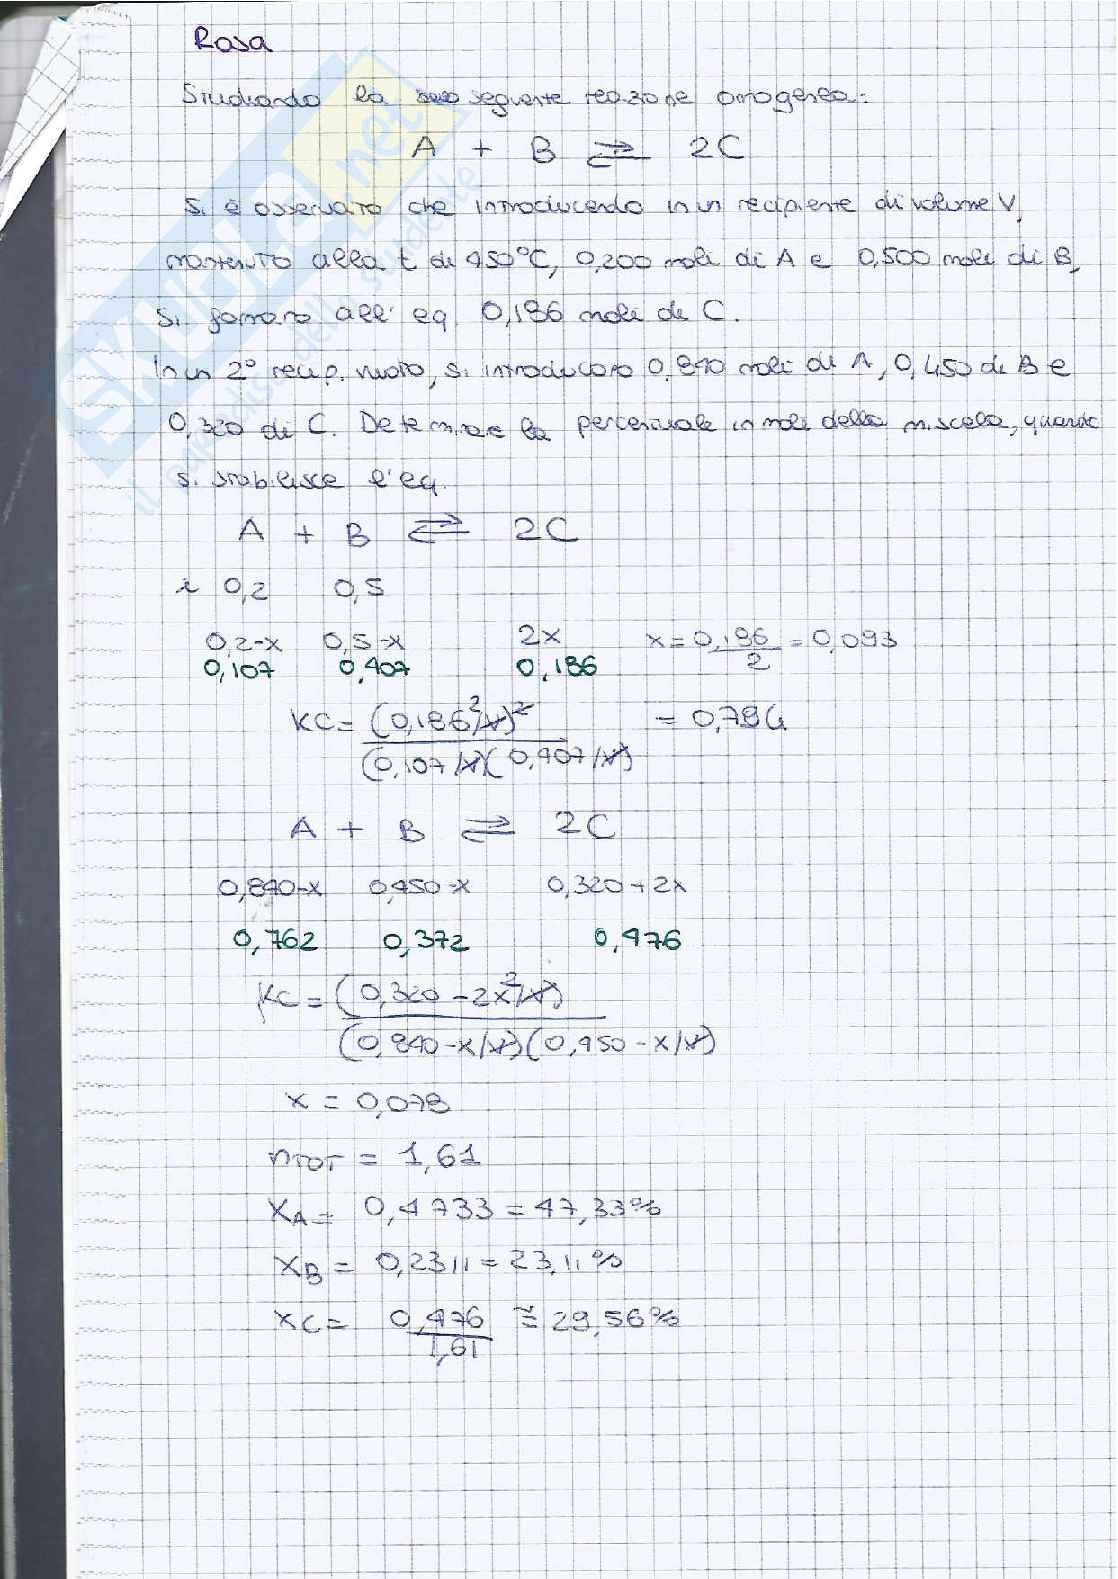 Rosa
Studiando la seguente reazione omogenea:
A + B ⇌ 2C
Si è osservato che introducendo in un recipiente di volume V,
mantenuto alla t di 450°C, 0,200 moli di A e 0,500 moli di B,
si formano all' eq. 0,186 moli di C.
In un 2° recip. vuoto, si introducono 0,840 moli di A, 0,450 di B e
0,320 di C. Determinare la percentuale in moli della miscela, quando
si stabilisce l'eq.
A + B ⇌ 2C
i 0,2 0,5
0,2-x 0,5-x 2x x = 0,186/2 = 0,093
0,107 0,407 0,186
KC = (0,186/V)² = 0,794
(0,107/V)(0,407/V)
A + B ⇌ 2C
0,840-x 0,450-x 0,320+2x
0,762 0,372 0,476
KC = (0,320-2x²/V)
(0,840-x/V)(0,450-x/V)
x = 0,078
nTOT = 1,61
XA = 0,4733 = 47,33%
XB = 0,2311 = 23,11%
XC = 0,476/1,61 ≅ 29,56%
SKUOLA.net
il paradiso dello studente